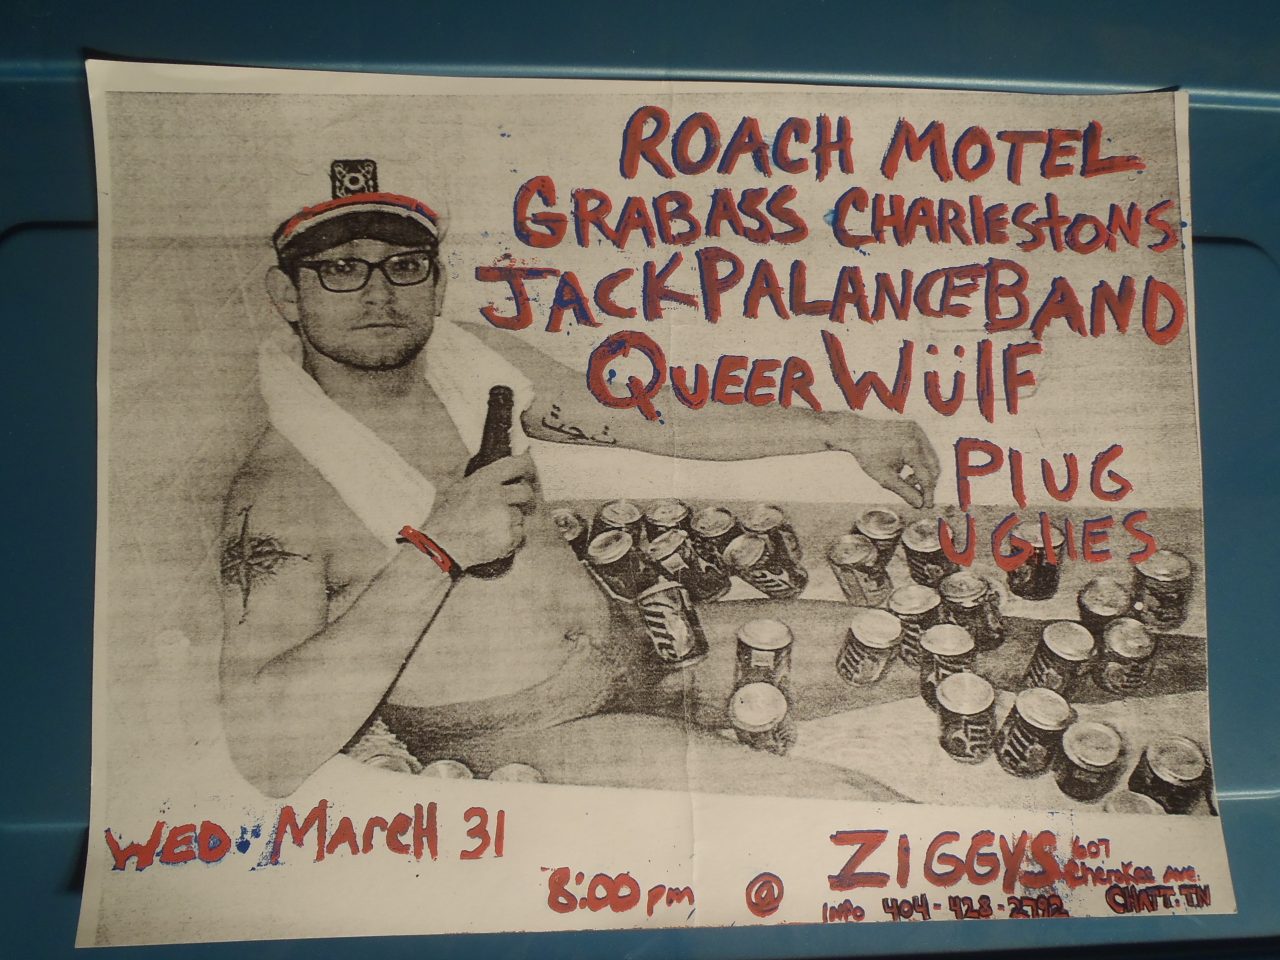 ROACH MOTEL
GRABASS CHARlEStONS
JACK PALANCE BAND
QUEER WÜlF
PlUG
UGlIES
WED. MARCH 31
8:00pm @ ZIGGYS 607
Cherokee Ave.
INFO 404-428-2792 CHATT. TN